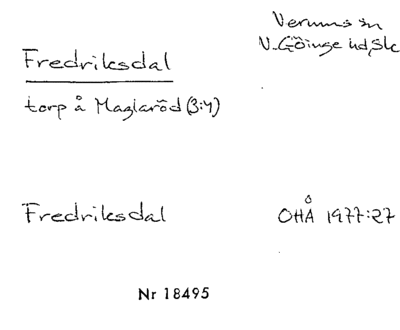 Verums sn
V. Göinge hd, Sk
Fredriksdal
torp å Maglaröd (3:4)
Fredriksdal
OHÅ 1977:27
Nr 18495